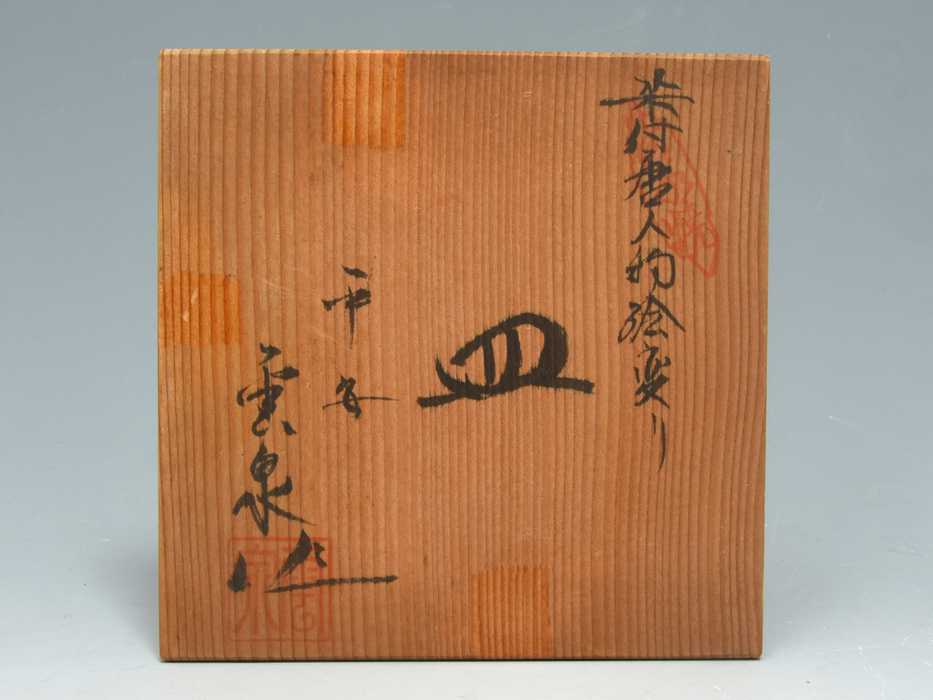 染付唐人物絵変り
皿
平安
雲泉作